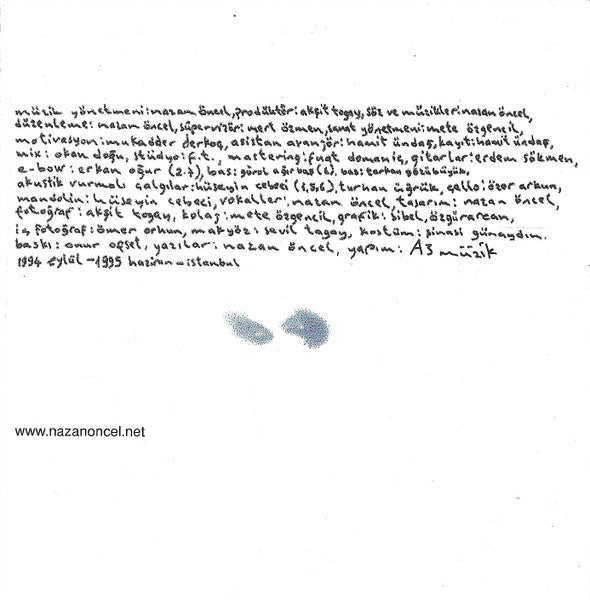 müzik yönetmeni: nazan öncel, prodüktör: akşit togay, söz ve müzikler: nazan öncel,
düzenleme: nazan öncel, süpervizör: mert özmen, sanat yönetmeni: mete özgencil,
motivasyon: mukadder derkoç, asistan aranjör: hamit ündaş, kayıt: hamit ündaş,
mix: okan doğu, stüdyo: f.t., mastering: fuat domaniç, gitarlar: erdem sökmen,
e-bow: erkan oğur (2.7), bas: gürol ağırbaş (6), bas: tarkan gözübüyük,
akustik vurmalı çalgılar: hüseyin cebeci (1,5,6), turhan üğrük, çello: özer arkun,
mandolin: hüseyin cebeci, vokaller: nazan öncel, tasarım: nazan öncel,
fotoğraf: akşit togay, kolaj: mete özgencil, grafik: sibel, özgürarcan,
iç fotoğraf: ömer orhun, makyöz: sevil togay, kostüm: sinasi günaydın.
baskı: onur ofset, yazılar: nazan öncel, yapım: A3 müzik
1994 eylül - 1995 haziran - istanbul
www.nazanoncel.net